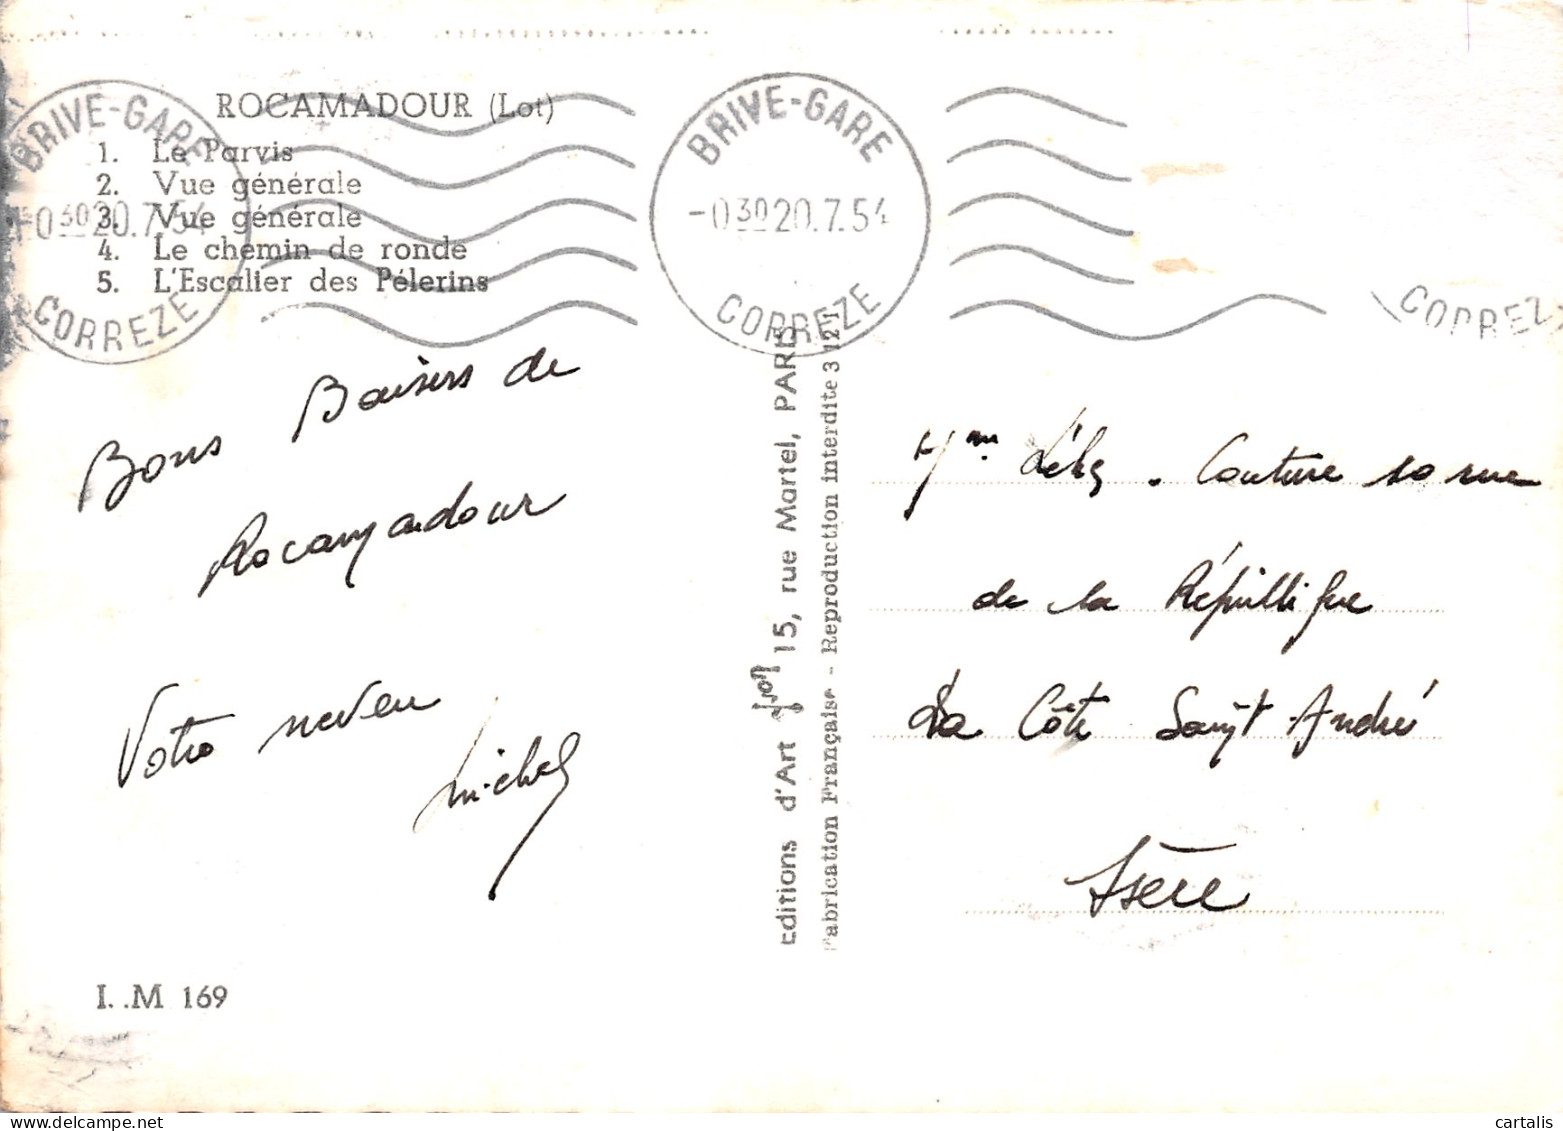 ROCAMADOUR (Lot)
1. Le Parvis
2. Vue générale
3. Vue générale
4. Le chemin de ronde
5. L'Escalier des Pélerins
BRIVE-GARE
-0 30 20.7.54
CORREZE
BRIVE-GARE
-0 30 20.7.54
CORREZE
CORREZ
Bons Baisers de
Rocamadour
Votre neveu
Michel
I. .M 169
Editions d'Art Yvon 15, rue Martel, PARIS
Fabrication Française - Reproduction interdite 3 12 1
Couture 10 rue
de la République
La Côte Saint André
Isère
cartalis